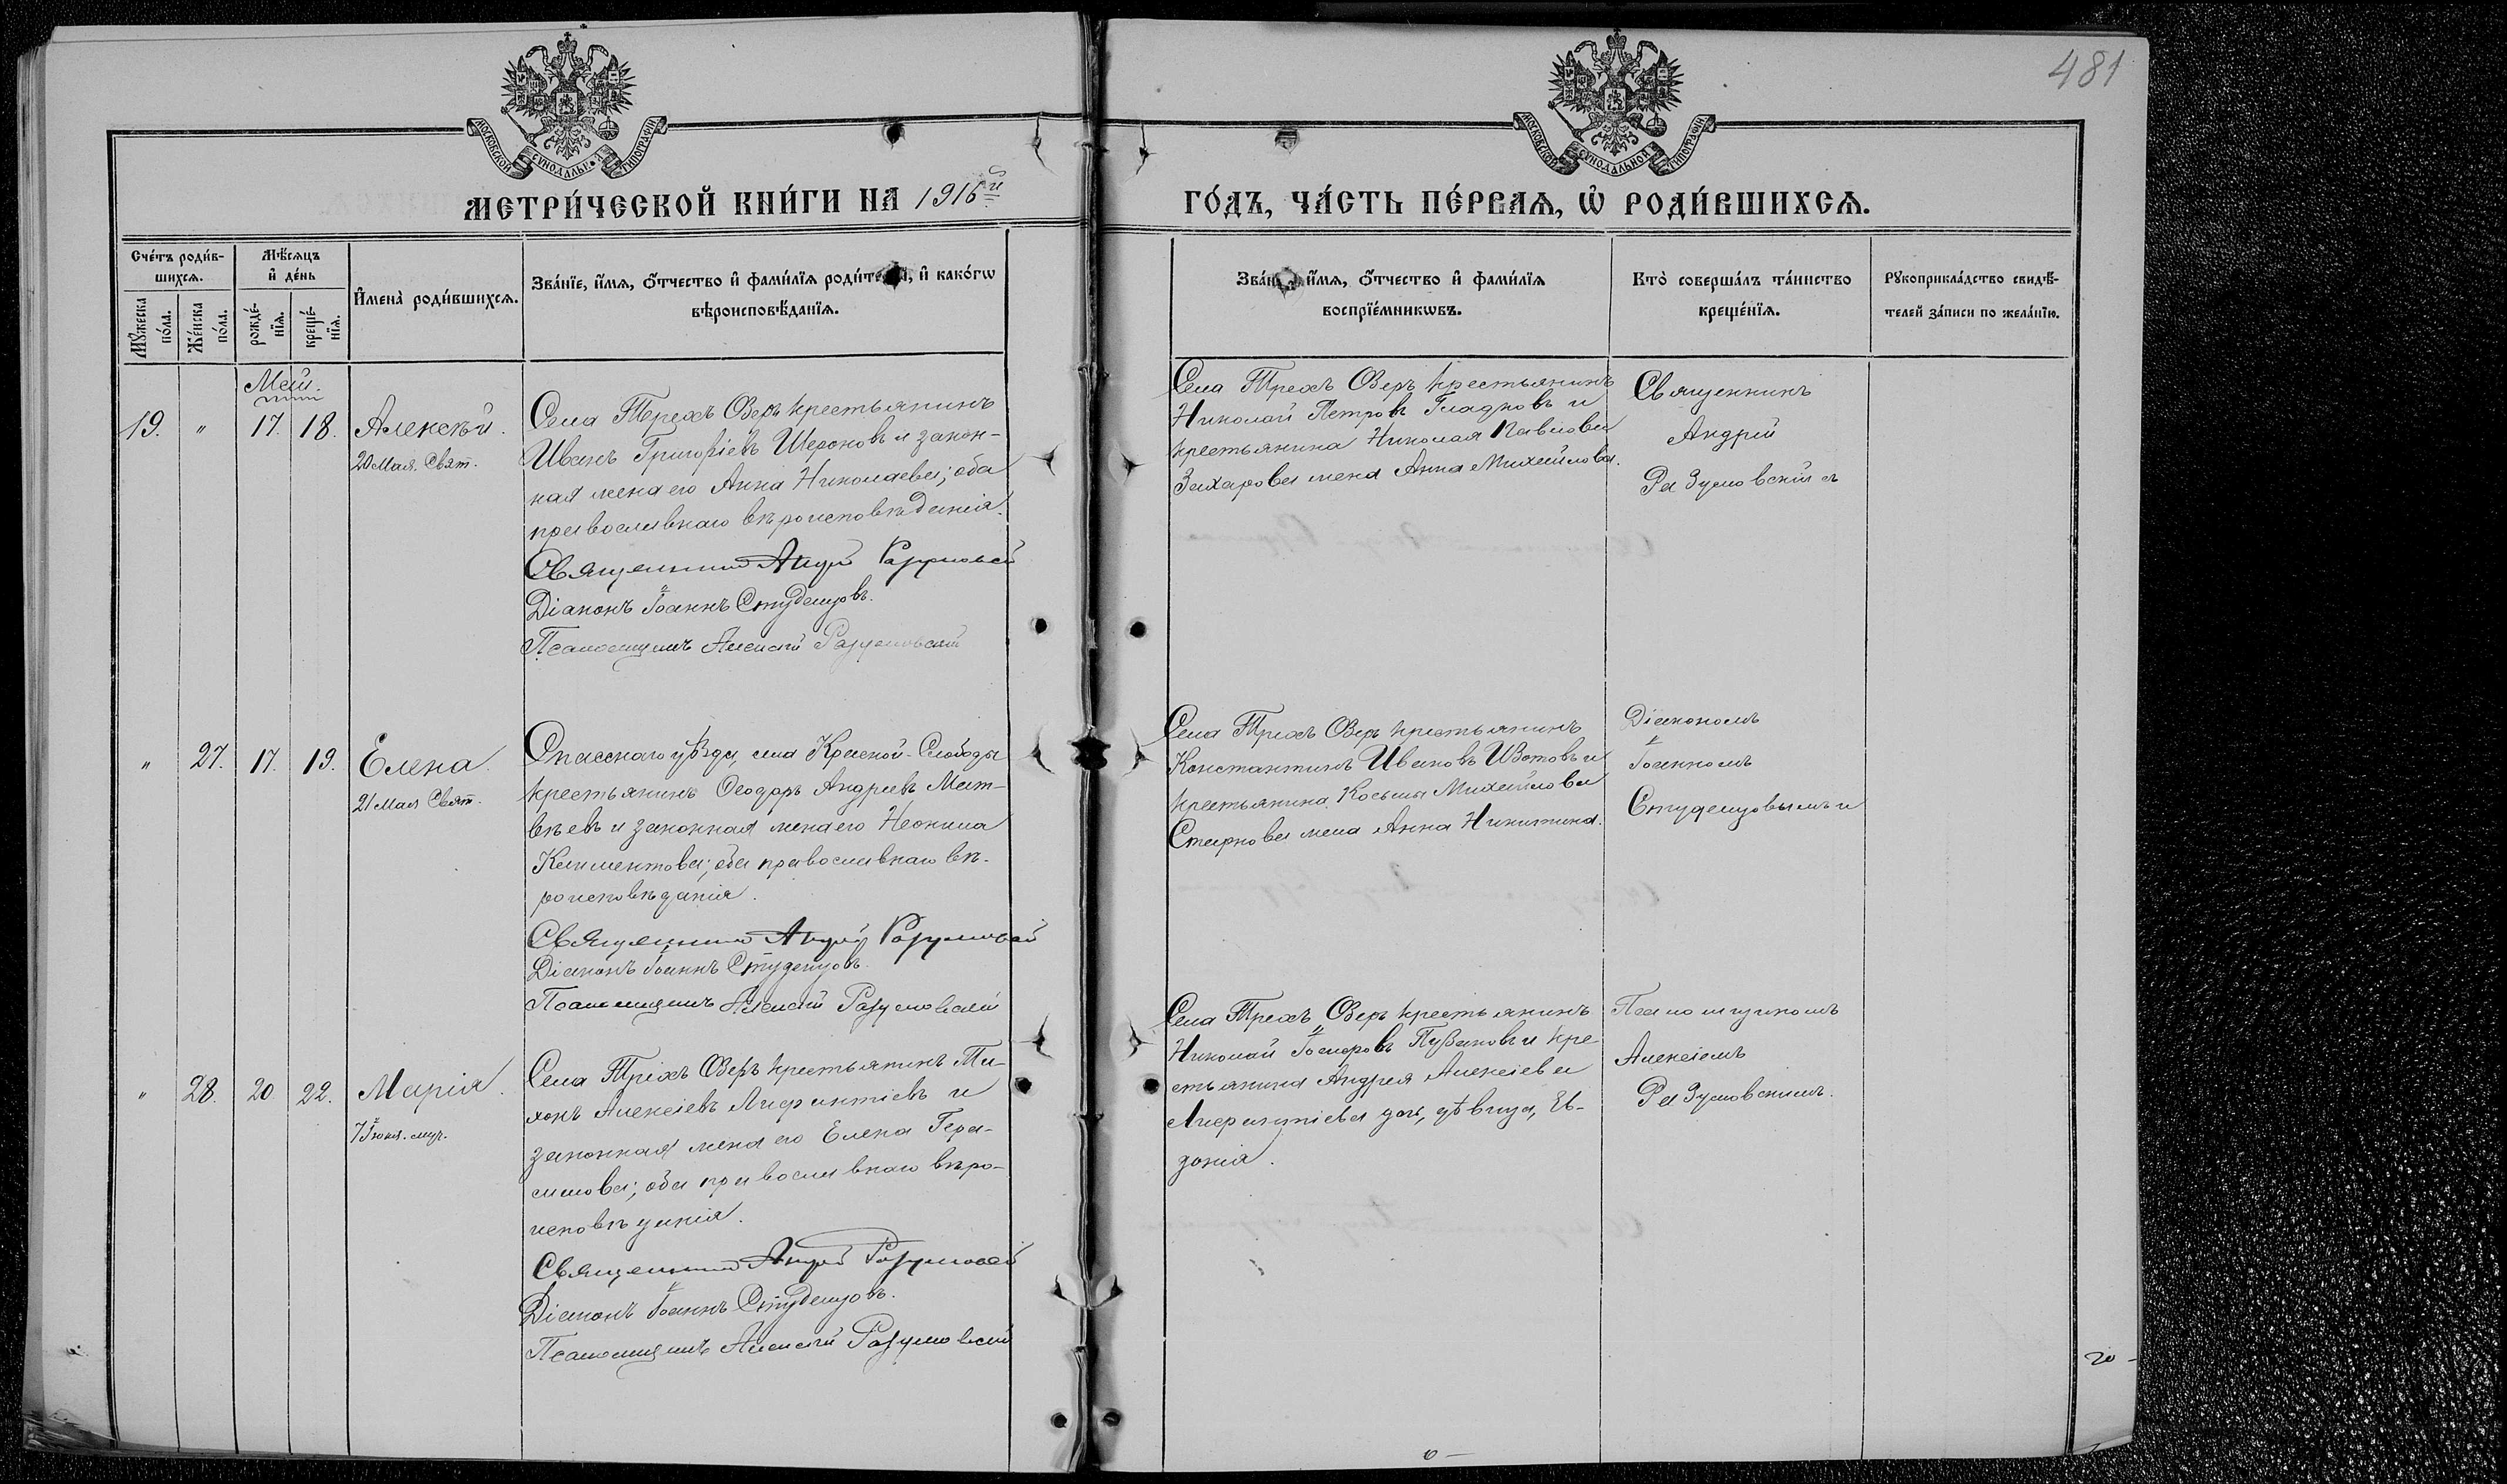 481
МОСКОВСКОЙ СѴНОДАЛЬНОЙ ТИПОГРАФИИ
МОСКОВСКОЙ СѴНОДАЛЬНОЙ ТИПОГРАФИИ
МЕТРИ́ЧЕСКОЙ КНИ́ГИ НА 1916й
ГО́ДЪ, ЧА́СТЬ ПЕ́РВАѦ, Ѡ РОДИ́ВШИХСѦ.
Сче́тъ роди́в-
шихсѧ.
Мꙋ́жеска по́ла.
Же́нска по́ла.
Мѣ́сѧцъ
и҆ де́нь
рожде́-
нїѧ.
креще́-
нїѧ.
И҆мена̀ роди́вшихсѧ.
Зва́нїе, и҆́мѧ, ѻ҆́тчество и҆ фами́лїѧ роди́телей, и҆ како́гѡ
вѣроисповѣ́данїѧ.
Зва́нїе, и҆́мѧ, ѻ҆́тчество и҆ фами́лїѧ
воспрїе́мникѡвъ.
Кто̀ соверша́лъ та́инство
креще́нїѧ.
Рꙋкоприкла́дство свидѣ́-
телей за́писи по жела́нїю.
Май.
19. " 17. 18. Алексѣй.
20 Мая. Свят.
Села Трехъ Озеръ крестьянинъ
Иванъ Григоріевъ Шероновъ и закон-
ная жена его Анна Николаева; оба
православнаго вѣроисповѣданія.
Священникъ Андрей Разумовскій
Діаконъ Іоаннъ Студенцовъ.
Псаломщикъ Алексій Разумовскій
Села Трехъ Озеръ крестьянинъ
Николай Петровъ Гладковъ и
крестьянина Николая Павлова
Захарова жена Анна Михайлова.
Священникъ
Андрей
Разумовскій съ
" 27. 17. 19. Елена.
21 Мая Свят.
Спасскаго уѣзда, села Красной-Слободы
крестьянинъ Ѳеодоръ Андреевъ Мат-
вѣевъ и законная жена его Неонила
Климентова; оба православнаго вѣ-
роисповѣданія.
Священникъ Андрей Разумовскій
Діаконъ Іоаннъ Студенцовъ.
Псаломщикъ Алексій Разумовскій
Села Трехъ Озеръ крестьянинъ
Константинъ Ивановъ Изотовъ и
крестьянина Косьмы Михайлова
Старкова жена Анна Никитина.
Діакономъ
Іоанномъ
Студенцовымъ и
" 28. 20 22. Марія.
7 Іюня. муч.
Села Трехъ Озеръ крестьянинъ Ти-
хонъ Алексіевъ Лаврентіевъ и
законная жена его Елена Гера-
симова; оба православнаго вѣро-
исповѣданія.
Священникъ Андрей Разумовскій
Діаконъ Іоаннъ Студенцовъ.
Псаломщикъ Алексій Разумовскій
Села Трехъ Озеръ крестьянинъ
Николай Пузановъ и кре-
стьянина Андрея Алексіева
дочь, дѣвица, Ев-
докія.
Псаломщикомъ
Алексіемъ
Разумовскимъ.